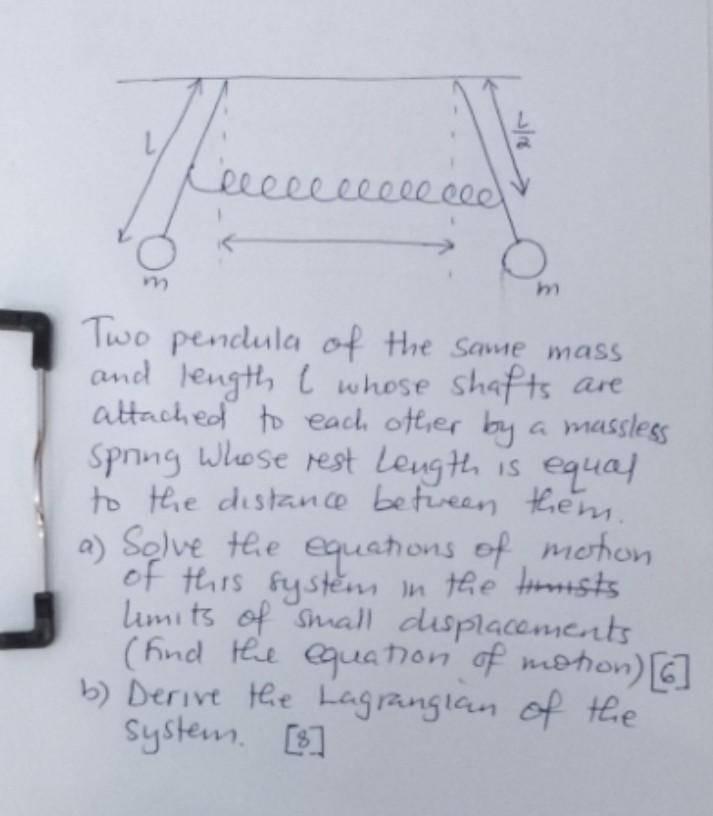 l
L/2
m
m
Two pendula of the same mass
and length l whose shafts are
attached to each other by a massless
spring whose rest length is equal
to the distance between them.
a) Solve the equations of motion
of this system in the limists
limits of small displacements
(find the equation of motion) [6]
b) Derive the Lagrangian of the
system. [8]